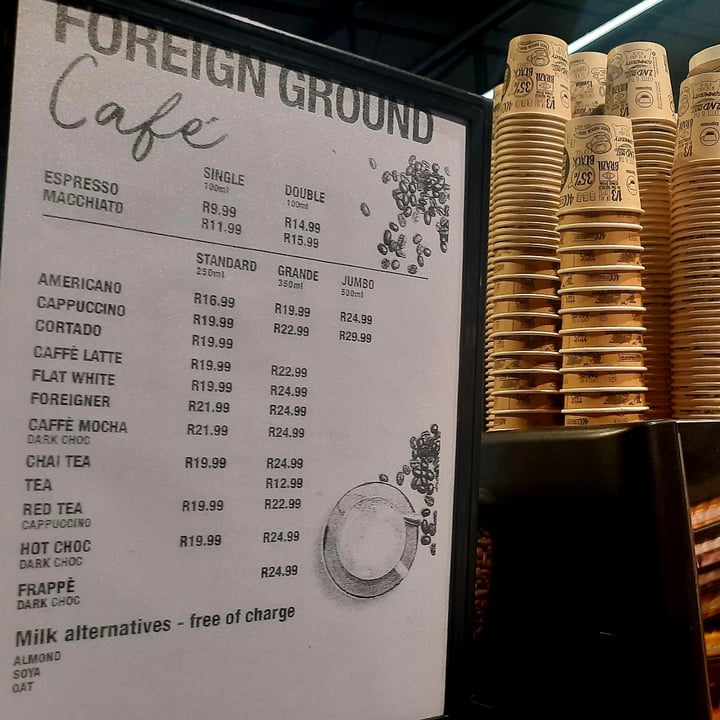 FOREIGN GROUND
Café
SINGLE DOUBLE
100ml 100ml
ESPRESSO R9.99 R14.99
MACCHIATO R11.99 R15.99
STANDARD GRANDE JUMBO
250ml 350ml 500ml
AMERICANO R16.99 R19.99 R24.99
CAPPUCCINO R19.99 R22.99 R29.99
CORTADO R19.99
CAFFÈ LATTE R19.99 R22.99
FLAT WHITE R19.99 R24.99
FOREIGNER R21.99 R24.99
CAFFÈ MOCHA R21.99 R24.99
DARK CHOC
CHAI TEA R19.99 R24.99
TEA R12.99
RED TEA R19.99 R22.99
CAPPUCCINO
HOT CHOC R19.99 R24.99
DARK CHOC
FRAPPÈ R24.99
DARK CHOC
Milk alternatives - free of charge
ALMOND
SOYA
OAT
BLACK
35%
BRAZIL
BLACK
35%
BRAZIL
1/3